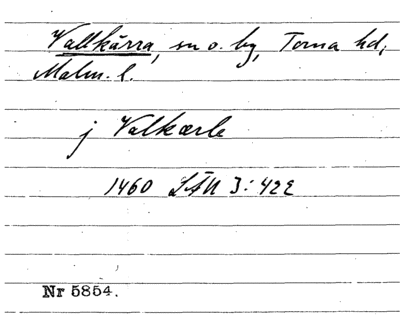 Vallkärra, sn o. by, Torna hd,
Malm. l.
j Valkærle
1460 LÄU 3:422
Nr 5854.